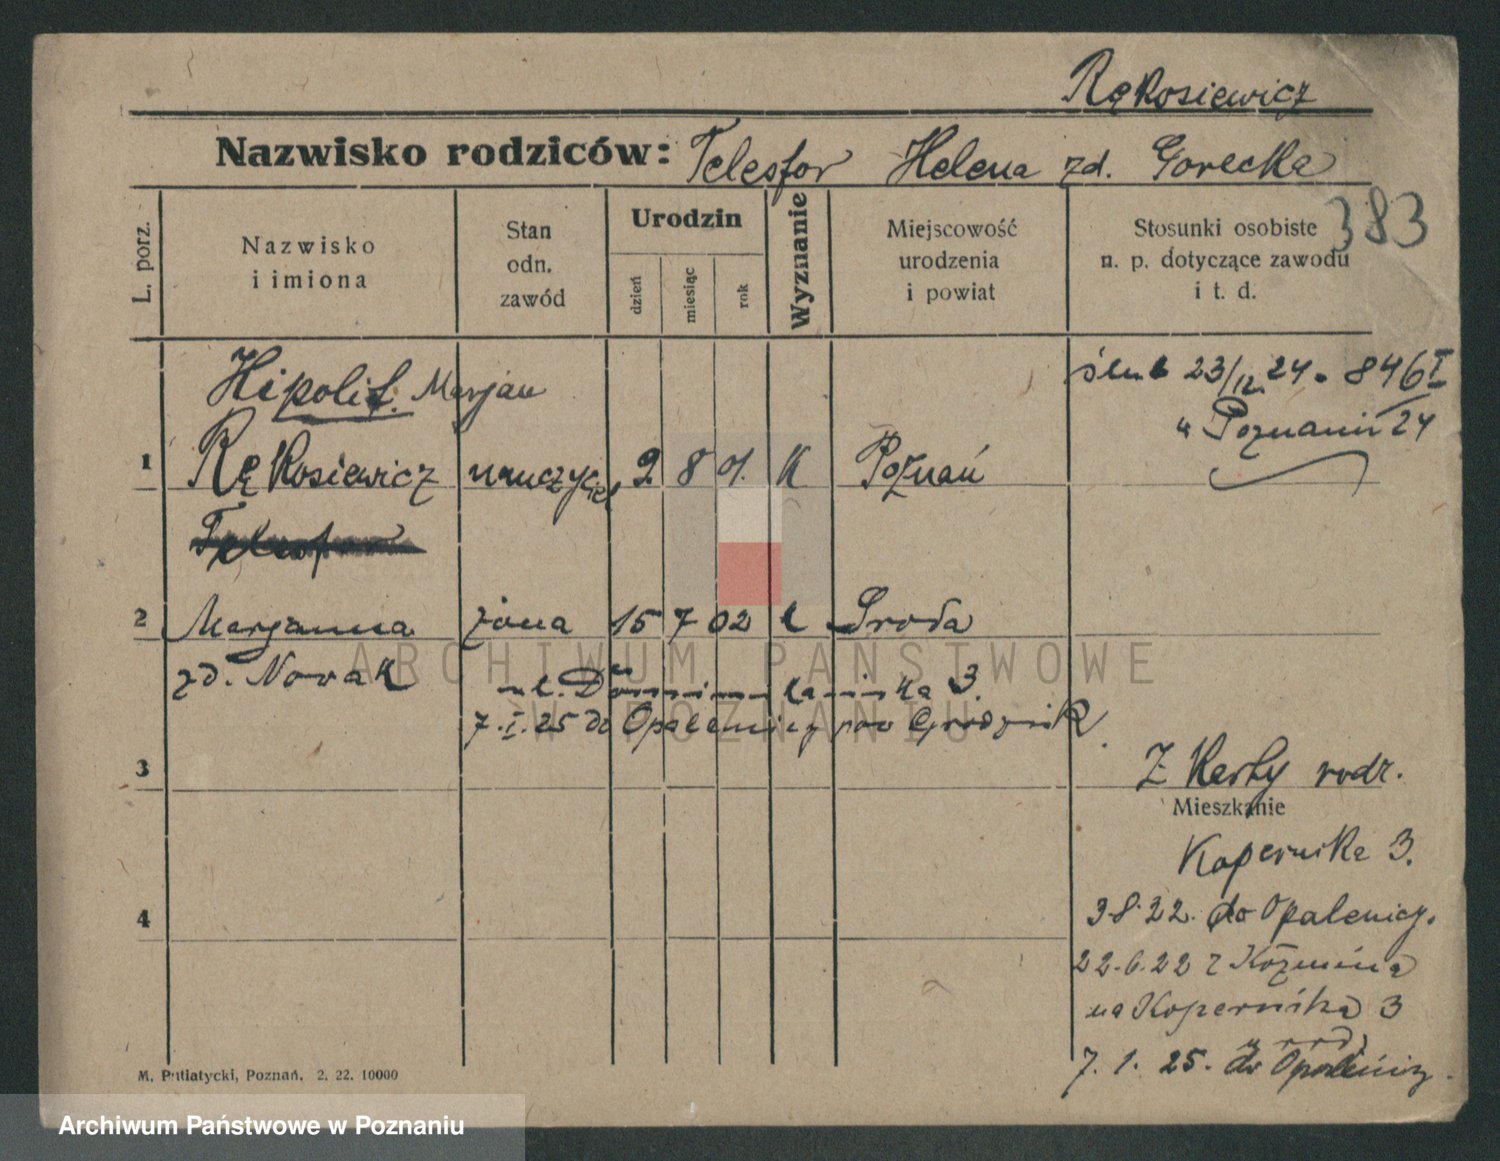 Rękosiewicz
Nazwisko rodziców: Telesfor Helena zd. Gorecka
383
L. porz.
Nazwisko i imiona
Stan odn. zawód
Urodzin
dzień
miesiąc
rok
Wyznanie
Miejscowość urodzenia i powiat
Stosunki osobiste n. p. dotyczące zawodu i t. d.
Hipolit Marjan
ślub 23/12 24 . 846 I
w Poznaniu 24
1 Rękosiewicz nauczyciel 2 8 01. K Poznań
Telesfor
2 Marjanna żona 15 7 02 k Środa
zd. Nowak
ul. Dominikańska 3.
7.I.25 do Opalenicy pow Grodzisk
3
Z Karty rodz.
Mieszkanie
Kopernika 3.
3.8.22. do Opalenicy.
4
22.6.22 z Koźmina
na Kopernika 3
7. 1. 25. do Opalenicy.
M. Putiatycki, Poznań. 2. 22. 10000
ARCHIWUM PAŃSTWOWE
W POZNANIU
Archiwum Państwowe w Poznaniu